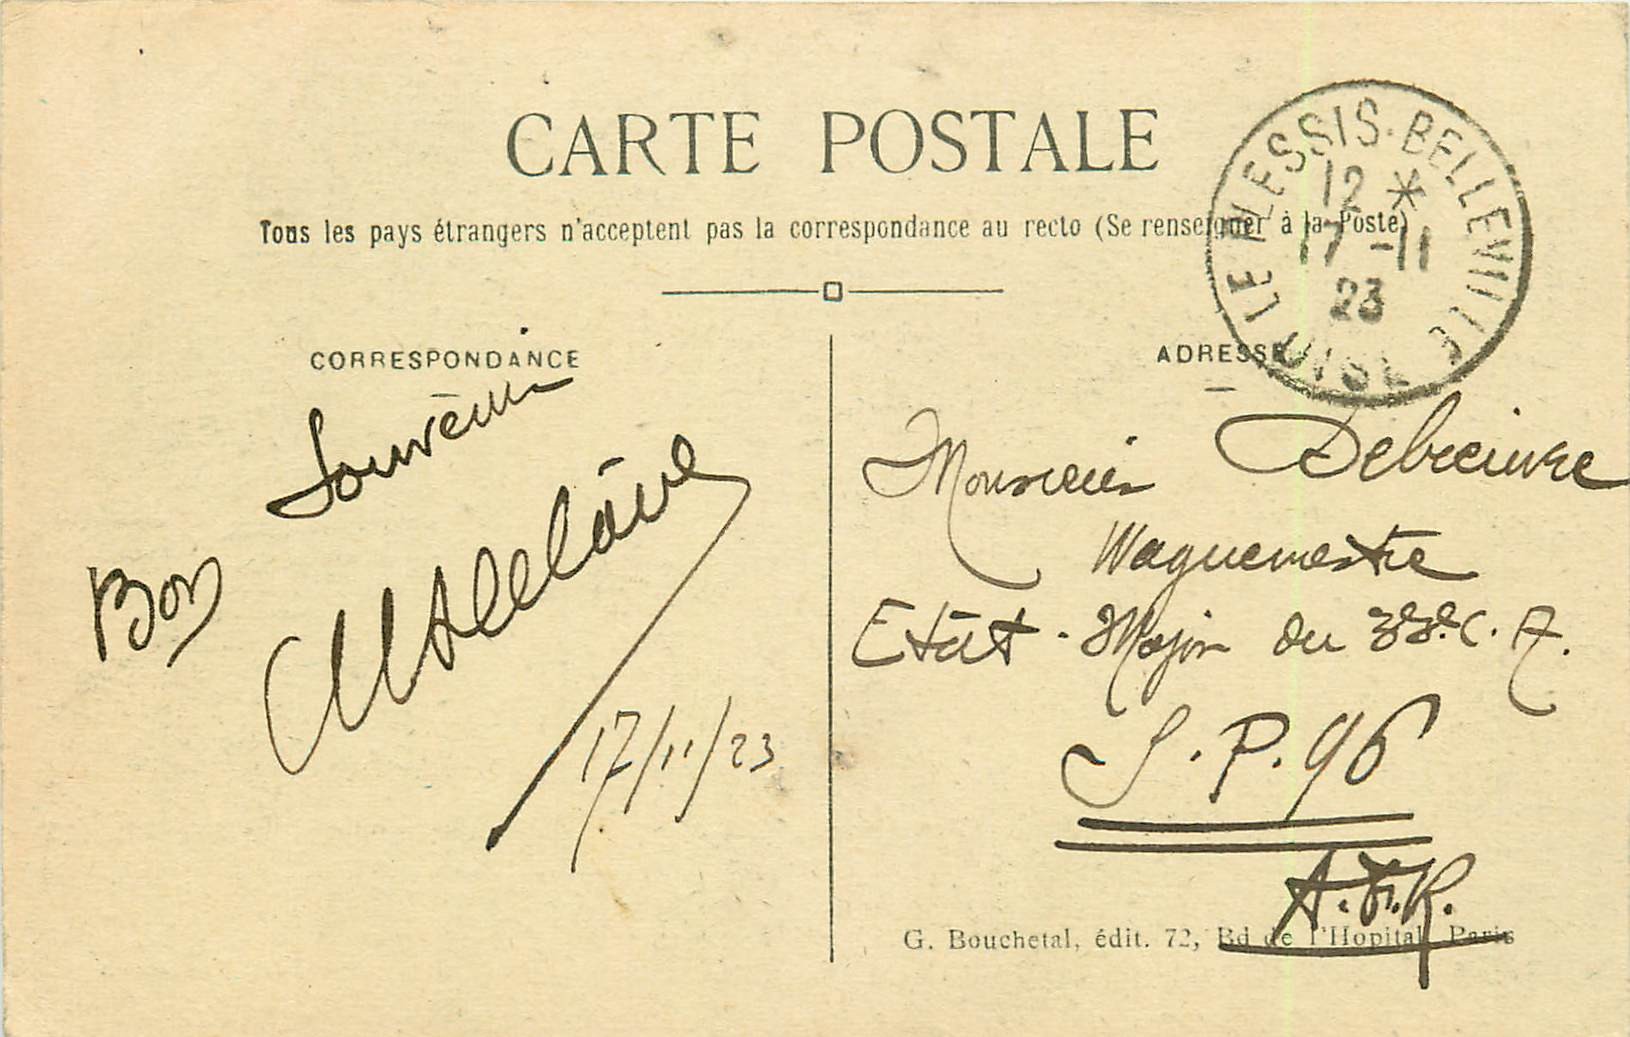 CARTE POSTALE
Tous les pays étrangers n'acceptent pas la correspondance au recto (Se renseigner à la Poste)
LE PLESSIS-BELLEVILLE
12 *
17 -11
23
OISE
CORRESPONDANCE
Bon Souvenir
17/11/23
ADRESSE
Monsieur
Waguemestre
Etat-Major du 33e C. A.
S.P. 96
A.F.R.
G. Bouchetal, édit. 72, Bd de l'Hopital, Paris